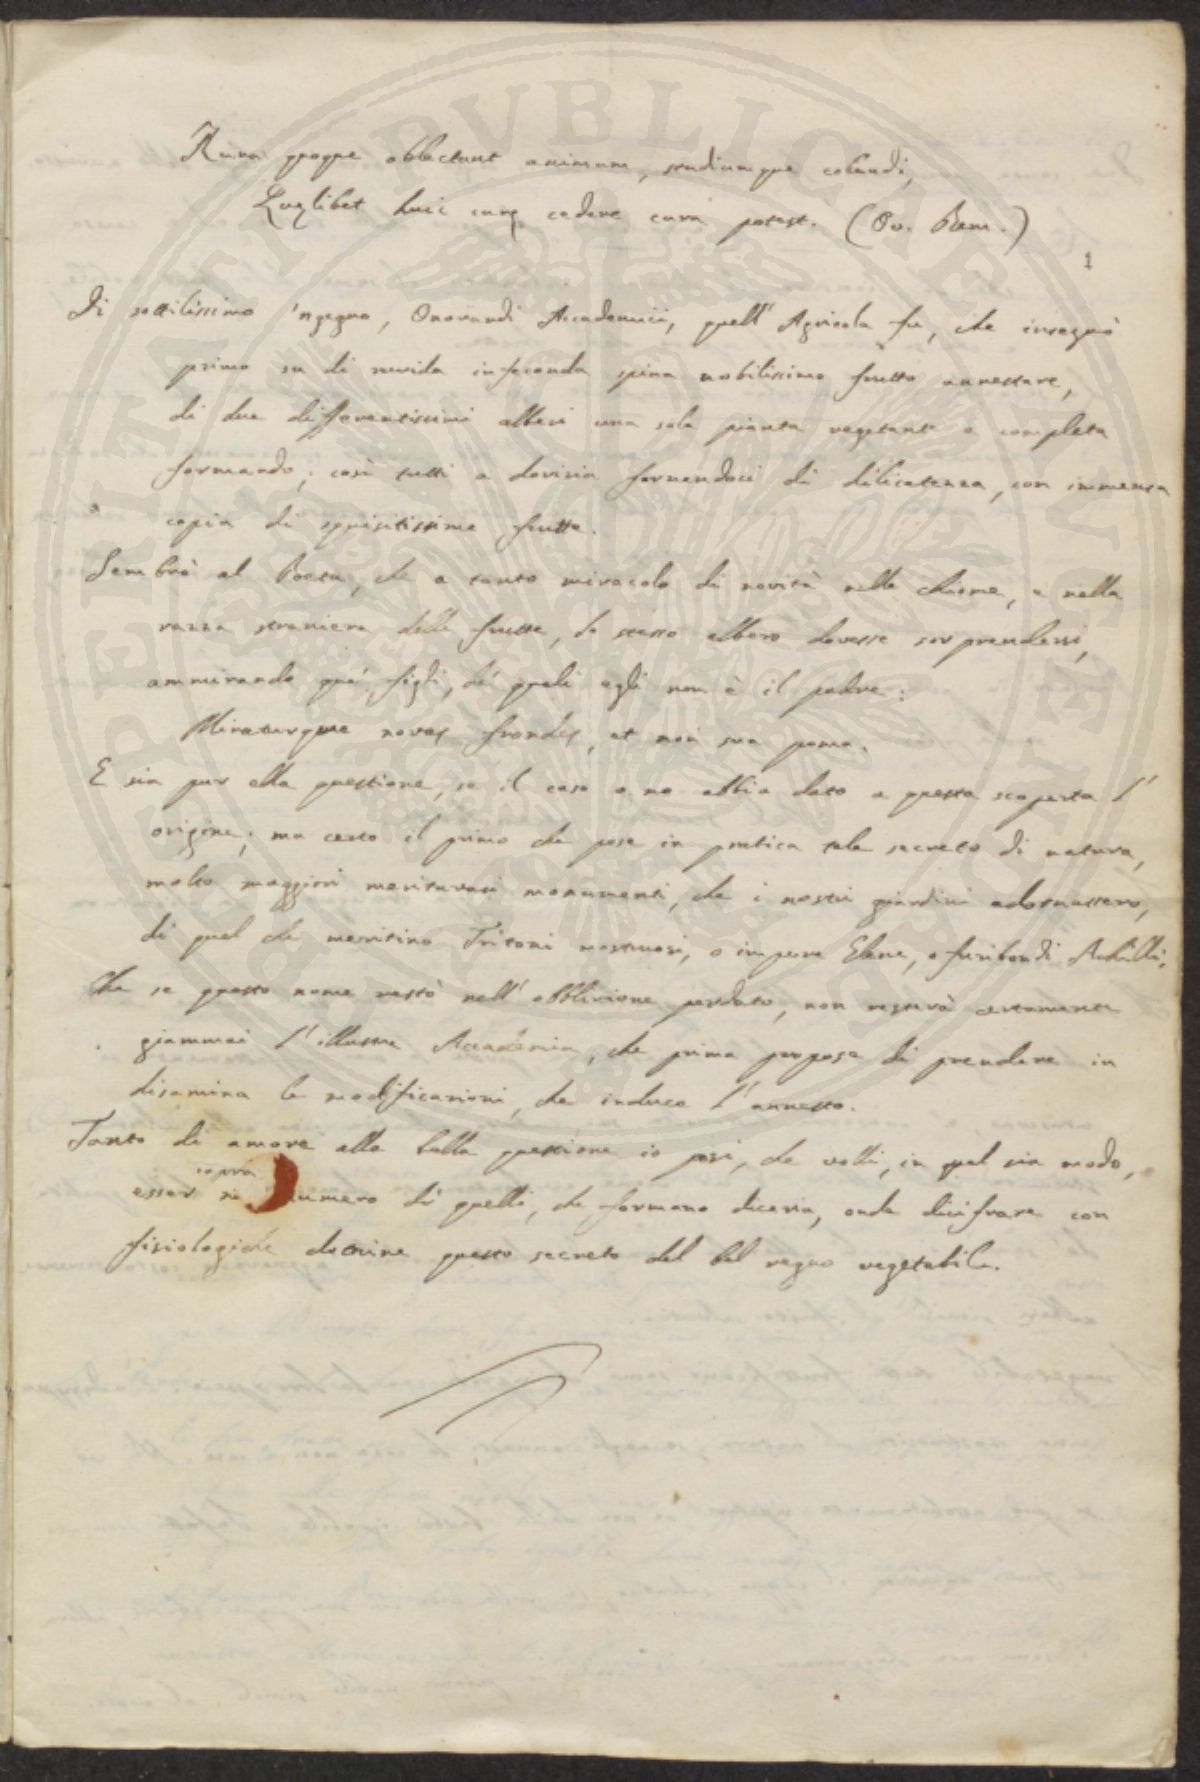 Rura quoque oblectant animum, studiumque colendi,
Quęlibet huic curę cedere cura potest. (Ov. Rem.)
1
Di sottilissimo 'ngegno, Onorandi Accademici, quell' Agricola fu, che insegnò
primo su di ruvida infeconda spina nobilissimo frutto annestare,
di due differentissimi alberi una sola pianta vegetante e completa
formando; così tutti a dovizia fornendoci di dilicatezza, con immensa
copia di squisitissime frutta.
Sembrò al Poeta, che a tanto miracolo di novità nelle chiome, e nella
razza straniera delle frutta, lo stesso albero dovesse sorprendersi,
ammirando que' figli, de' quali egli non è il padre:
Miraturque novas frondes, et non sua poma.
E sia pur ella questione, se il caso o no abbia dato a questa scoperta l'
origine; ma certo il primo che pose in pratica tale secreto di natura,
molto maggiori meritavasi monumenti, che i nostri giardini adornassero,
di quel che meritino Tritoni mostruosi, o impure Elene, o furibondi Achilli.
Che se questo nome restò nell' obblivione perduto, non resterà certamente
giammai l' illustre Accademia, che prima propose di prendere in
disamina le modificazioni, che induce l' annesto.
Tanto di amore alla bella questione io posi, che volli, in qual sia modo,
sopra
esser nel numero di quelli, che formano diceria, onde dicifrare con
fisiologiche dottrine questo secreto del bel regno vegetabile.
PUBLICAE